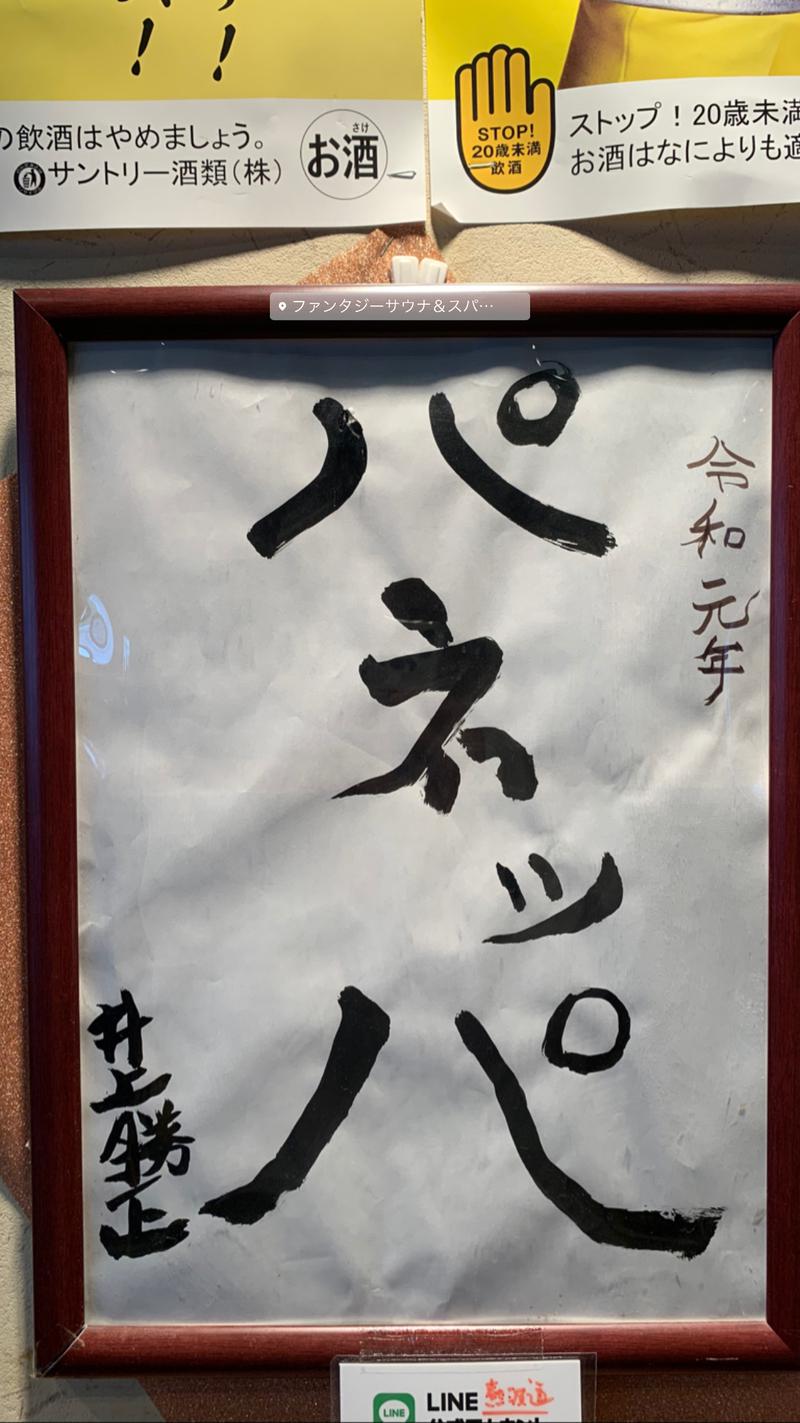 ！ ！
の飲酒はやめましょう。
サントリー酒類(株)
さけ
お酒
STOP!
20歳未満
飲酒
ストップ！20歳未満
お酒はなによりも適
ファンタジーサウナ＆スパ…
令和元年
パネッパ
井上勝正
LINE 熱波道
LINE